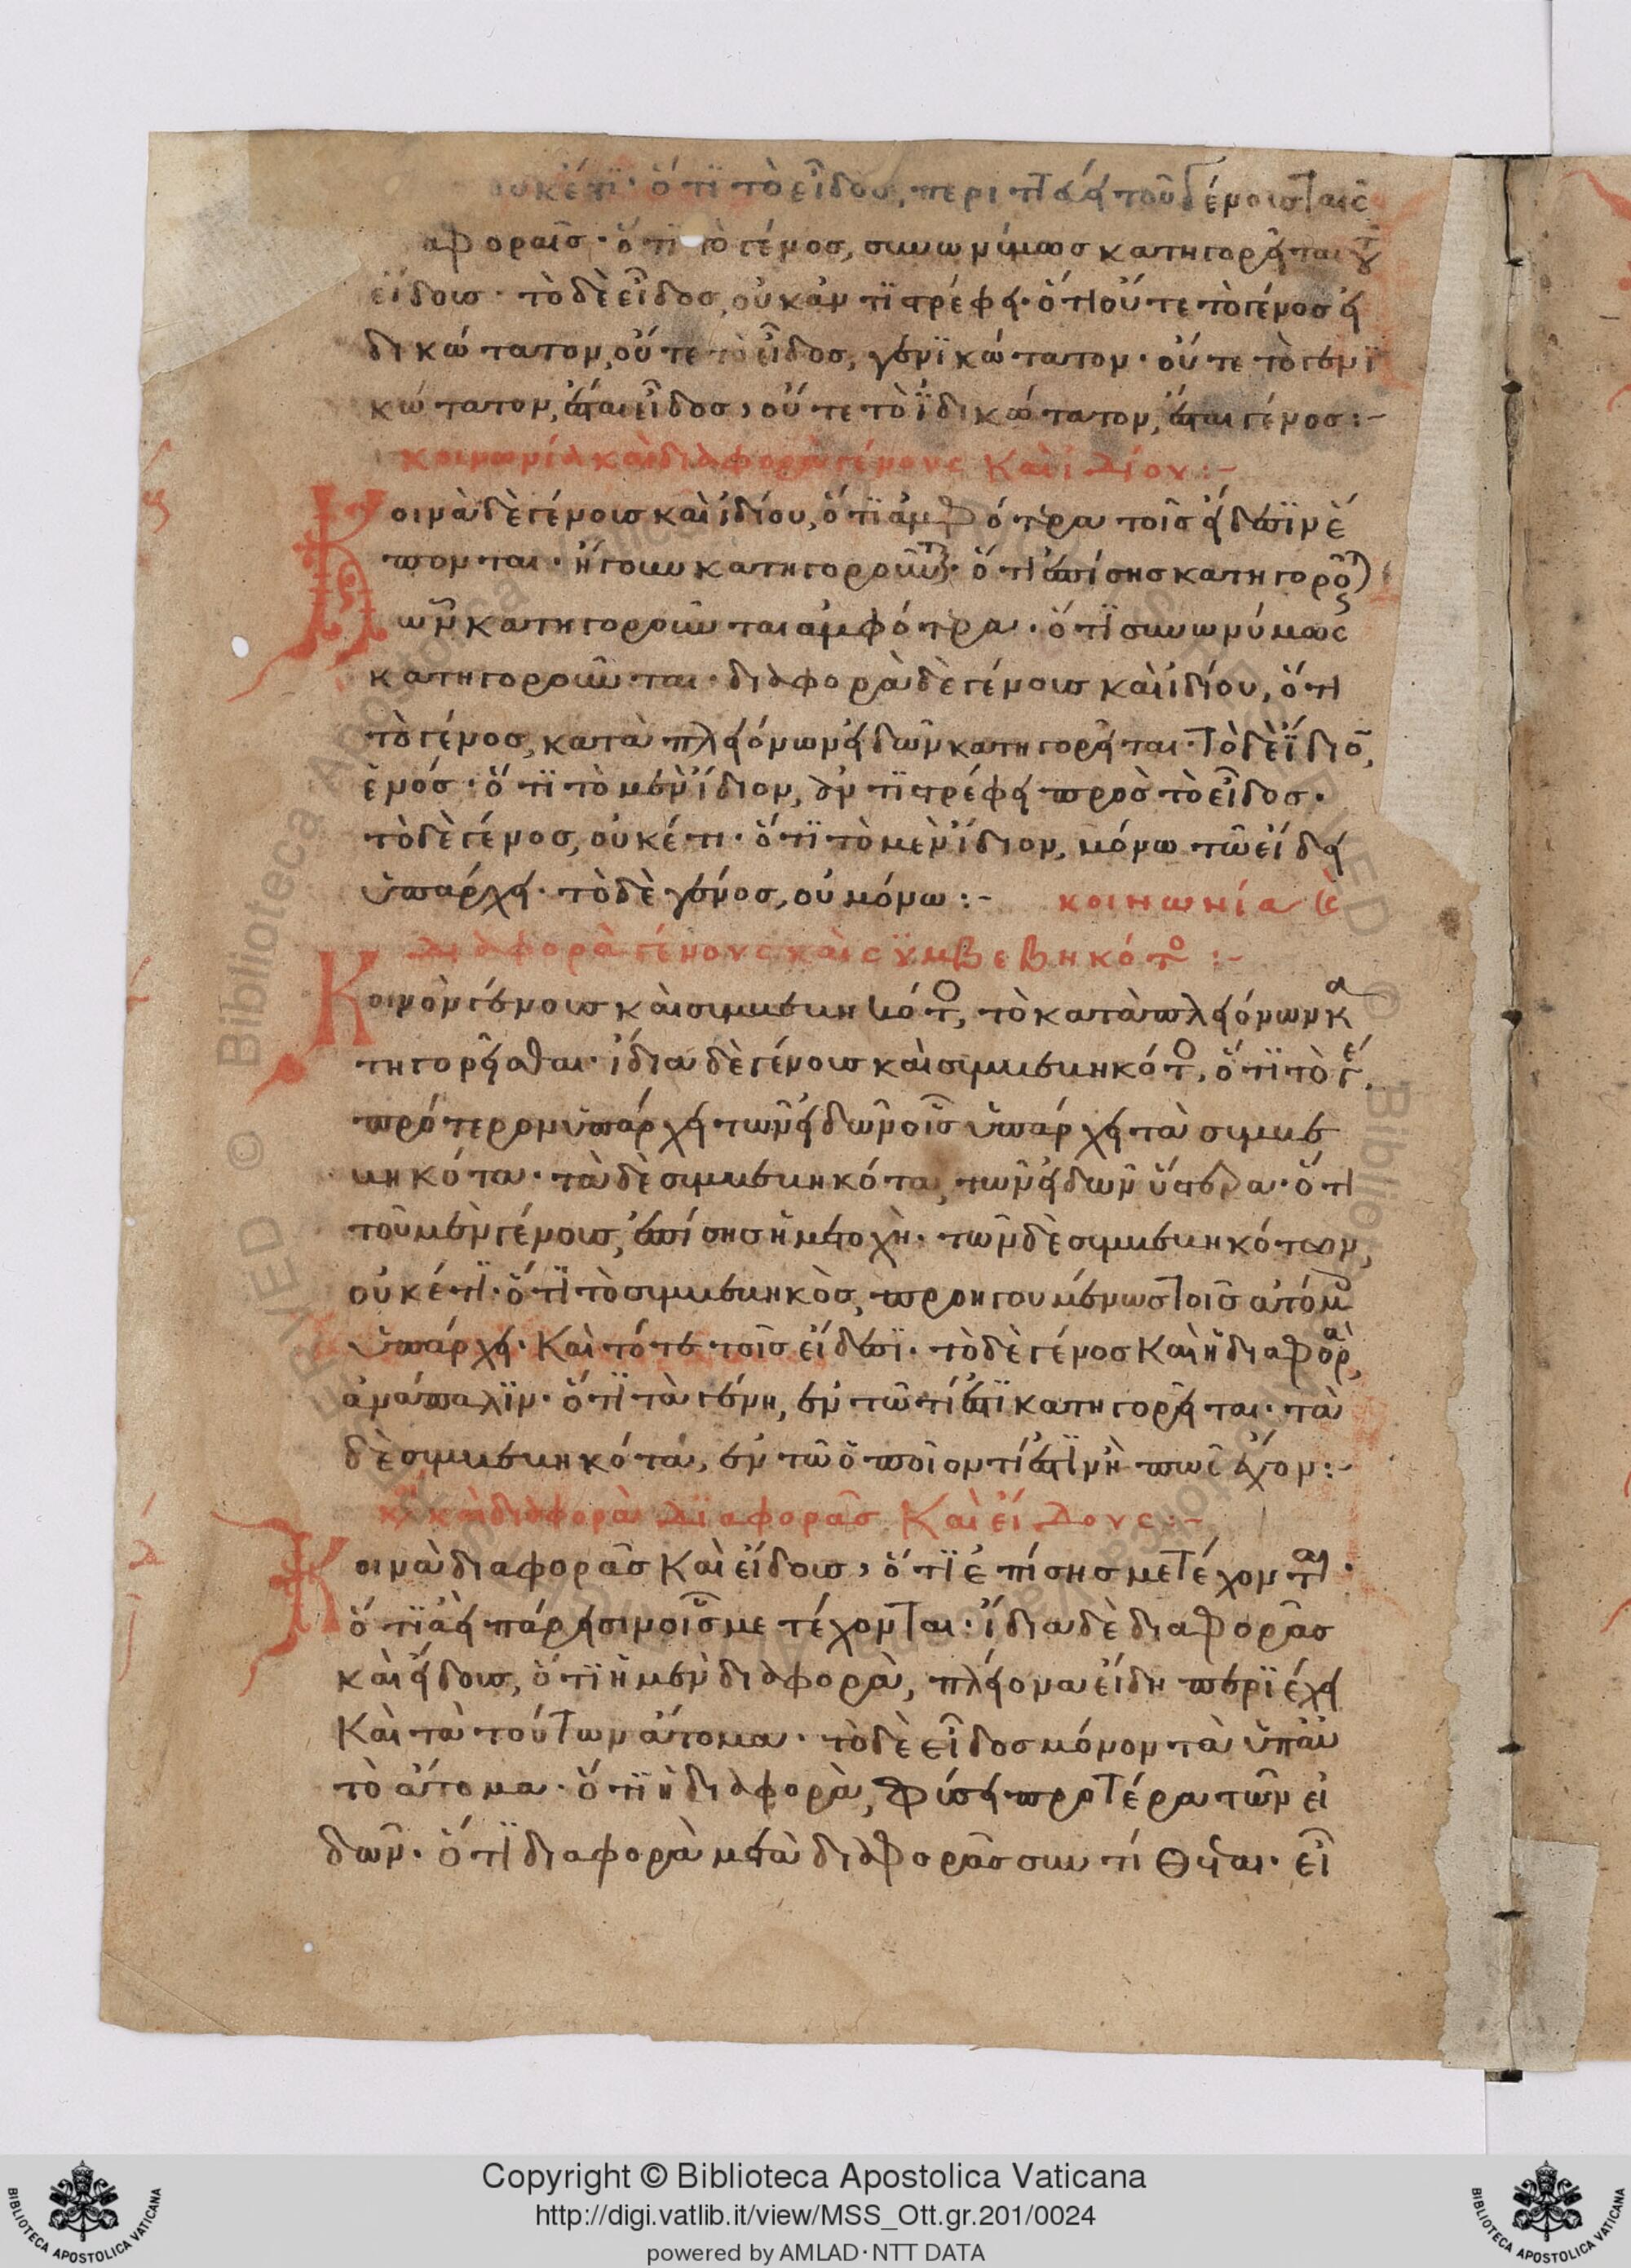 οὐκέτι· ὅτι τὸ εἶδος, περιττεύει τοῦ γένους ταῖς
αφοραῖς· ὅτι τὸ γένος, συνωνύμως κατηγορεῖται τοῦ
εἴδους· τὸ δὲ εἶδος, οὐκ ἀντιστρέφει· ὅτι οὔτε τὸ γένος εἰ
δικώτατον, οὔτε τὸ εἶδος, γενικώτατον· οὔτε τὸ γενι
κώτατον, ἔσται εἶδος, οὔτε τὸ ἰδικώτατον, ἔσται γένος:-
κοινωνία καὶ διαφορὰ γένους Καὶ ἰδίου:-
Κοινὰ δὲ γένους καὶ ἰδίου, ὅτι ἀμφότερα τοῖς εἴδεσιν ἕ
πονται· ἤγουν κατηγοροῦνται· ὅτι ἐπίσης κατηγορο
ὧν κατηγοροῦνται ἀμφότερα· ὅτι συνωνύμως
κατηγοροῦνται· διαφορὰ δὲ γένους καὶ ἰδίου, ὅτι
τὸ γένος, κατὰ πλειόνων εἰδῶν κατηγορεῖται· Τὸ δὲ ἴδιον,
ἑνός· ὅτι τὸ μὲν ἴδιον, ἀντιστρέφει πρὸς τὸ εἶδος·
τὸ δὲ γένος, οὐκέτι· ὅτι τὸ μὲν ἴδιον, μόνω τῶ εἴδει
ὑπάρχει· τὸ δὲ γένος, οὐ μόνω:- κοινωνία καὶ
διαφορὰ γένους καὶ συμβεβηκότος:-
Κοινὸν γένους καὶ συμβεβηκότος, τὸ κατὰ πλειόνων κα
τηγορεῖσθαι· ἴδια δὲ γένους καὶ συμβεβηκότος, ὅτι τὸ γέ,
πρότερον ὑπάρχει τῶν εἰδῶν οἷς ὑπάρχει τὰ συμβε
βηκότα· τὰ δὲ συμβεβηκότα, τῶν εἰδῶν ὕστερα· ὅτι
τοῦ μὲν γένους, ἐπίσης ἡ μετοχὴ· τῶν δὲ συμβεβηκότων,
οὐκέτι· ὅτι τὸ συμβεβηκὸς, προηγουμένως τοῖς ἀτόμοις
ὑπάρχει· Καὶ τότε τοῖς εἴδεσι· τὸ δὲ γένος Καὶ ἡ διαφορὰ,
ἀνάπαλιν· ὅτι τὰ γένη, ἐν τῶ τί ἐστι κατηγορεῖται· τὰ
δὲ συμβεβηκότα, ἐν τῶ ὁποῖον τί ἐστιν ἢ πῶς ἔχον:-
κοι καὶ διαφορὰ διαφορᾶς Καὶ εἴδους:-
Κοινὰ διαφορᾶς Καὶ εἴδους, ὅτι ἐπίσης μετέχονται·
ὅτι ἀεὶ πάρεισιν οἷς μετέχονται· ἴδια δὲ διαφορᾶς
καὶ εἴδους, ὅτι ἡ μὲν διαφορὰ, πλείονα εἴδη περιέχει
Καὶ τὰ τούτων ἄτομα· τὸ δὲ εἶδος μόνον τὰ ὑπ' αὐ
τὸ ἄτομα· ὅτι ἡ διαφορὰ, φύσει προτέρα τῶν εἰ
δῶν· ὅτι διαφορὰ μετὰ διαφορᾶς συντίθεται· εἶ